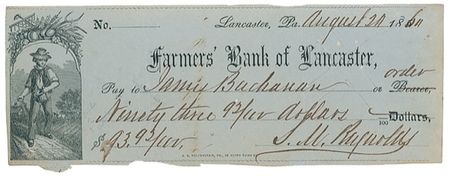 No. Lancaster, Pa. August 24 1860
Farmers' Bank of Lancaster,
Pay to James Buchanan or Bearer, order
Ninety three 93/100 dollars 100 Dollars,
$ 93.93/100 S. M. Reynolds